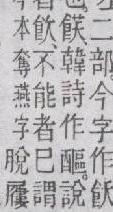 二部。今字作飫
也。韓詩作醧。說
者飮、不能者已。謂
今本奪燕字脫屨